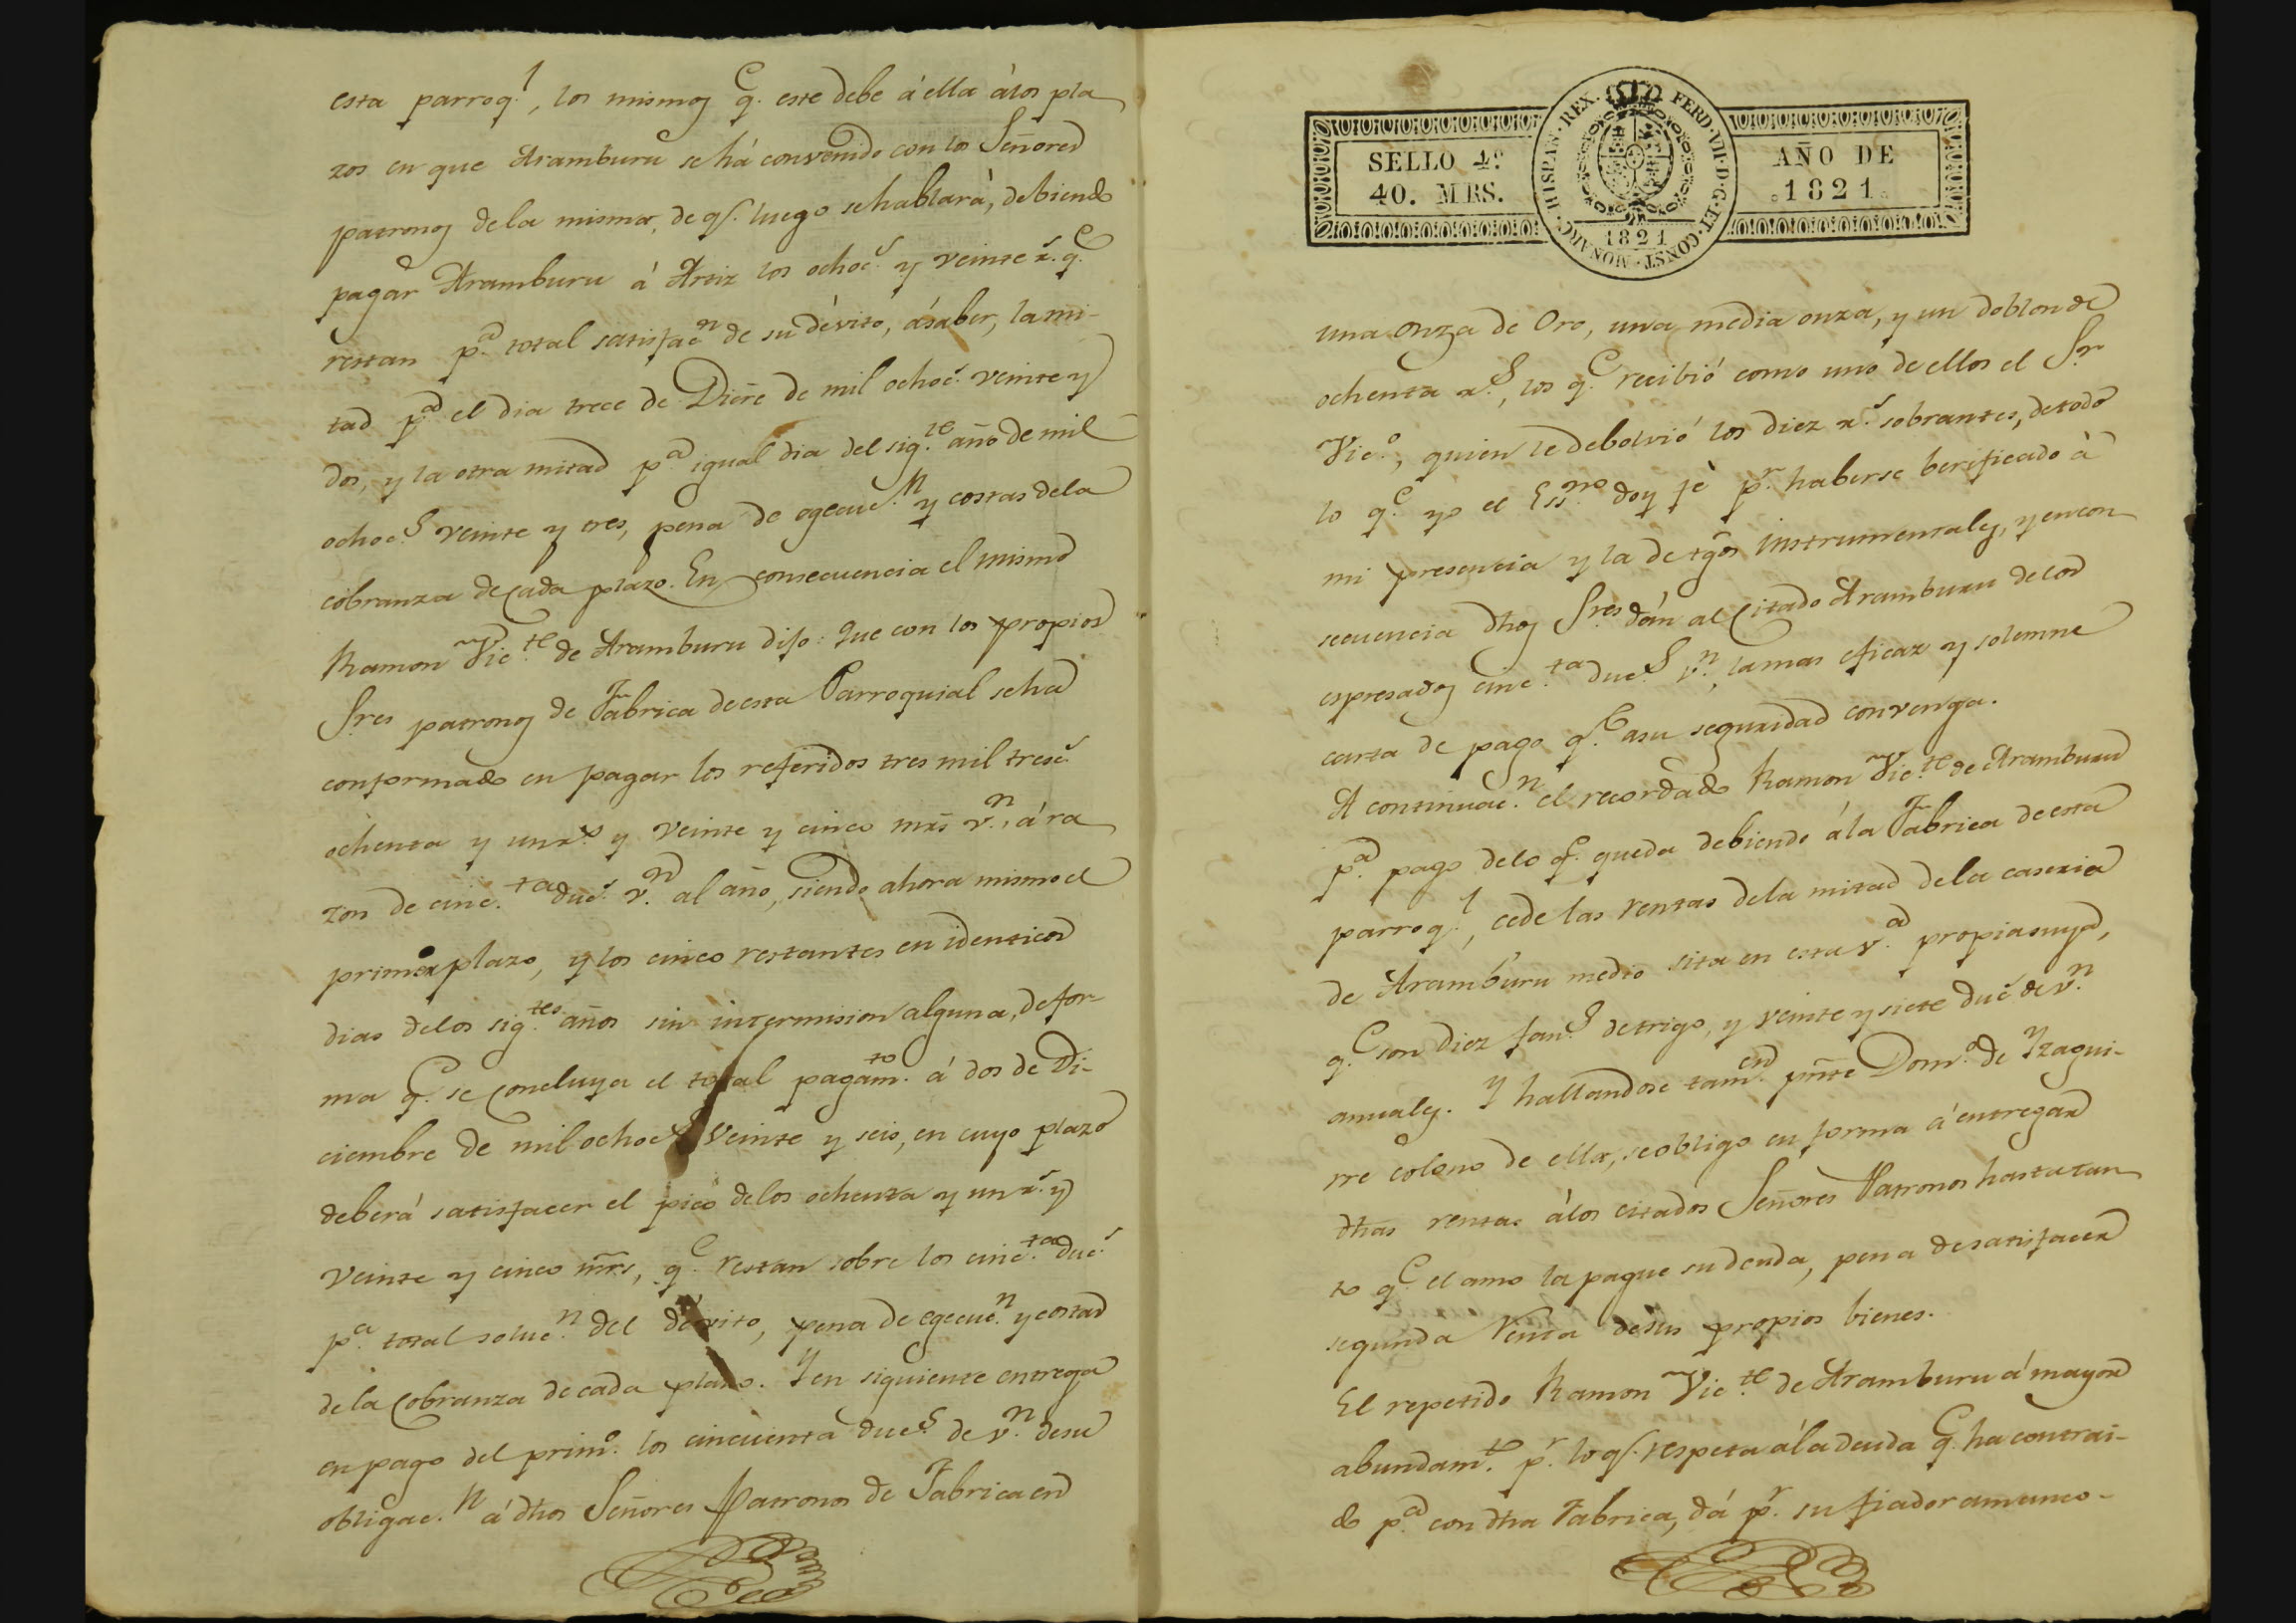 esta parroq.l, los mismos q.e este debe á ella á los pla
zos en que Aramburu se há convenido con los Señores
patronos de la misma, de q.e luego se hablará, debiendo
pagar Aramburu á Artiz los ochoc.s y veinte r.s q.e
restan p.a total satisfac.n de su dévito, ásaber, la mi-
tad p.a el dia trece de Diciẽ de mil ochoc.s veinte y
dos, y la otra mitad p.a igual dia del sig.te año de mil
ochoc.s veinte y tres, pena de egecuc.n y costas de la
cobranza de cada plazo. En consecuencia el mismo
Ramon Vic.te de Aramburu dijo: Que con los propios
S.res patronos de Fabrica de esta Parroquial se ha
conformado en pagar los referidos tres mil tresc.s
ochenta y un r.s y veinte y cinco mrs v.n, á ra
zon de cinc.ta duc.s v.n al año, siendo ahora mismo el
primer plazo, y los cinco restantes en identicos
dias de los sig.tes años sin intermision alguna, de for-
ma q.e se concluya el total pagam.to á dos de Di-
ciembre de mil ochoc.s veinte y seis, en cuyo plazo
deberá satisfacer el pico de los ochenta y un r.s y
veinte y cinco mrs, q.e restan sobre los cinc.ta duc.s
p.a total soluc.n del dévito, pena de egecuc.n y costas
de la Cobranza de cada plazo. Y en siguiente entrega
en pago del prim.o los cincuenta duc.s de v.n de su
obligac.n á dhos Señores Patronos de Fabrica en
SELLO 4º
40. MRS.
HISPAN. REX. FERD. VII. D. G. ET. CONST. MONARC.
1821
AÑO DE
1821
una onza de Oro, una media onza, y un doblon de
ochenta r.s, los q.e recibió como uno de ellos el S.r
Vic.o, quien le debolvió los diez r.s sobrantes, de todo
lo q.e yo el Ess.no doy fé p.r haberse berificado á
mi presencia y la de tgõs instrumentales, y en con
secuencia dhos S.res dán al citado Aramburu de los
espresados cinc.ta duc.s v.n, la mas eficaz y solemne
carta de pago q.e a su seguridad convenga.
A continuac.n el recordado Ramon Vic.te de Aramburu
p.a pago de lo q.e queda debiendo á la Fabrica de esta
parroq.l, cede las rentas de la mitad de la caseria
de Aramburu medio sita en esta v.a propia suya,
q.e son diez fan.s de trigo, y veinte y siete duc.s de v.n
anuales. Y hallandose tam.en pñte Dom.o de Yzagui-
rre colono de ella, se obligo en forma á entregar
dhas rentas á los citados Señores Patronos hasta tan
to q.e el amo la pague su deuda, pena de satisfacer
segunda Venta de sus propios bienes.
El repetido Ramon Vic.te de Aramburu á mayor
abundam.to p.r lo q.e respeta á la deuda q.e ha contrai-
do p.a con dha Fabrica, dá p.r su fiador a manco-